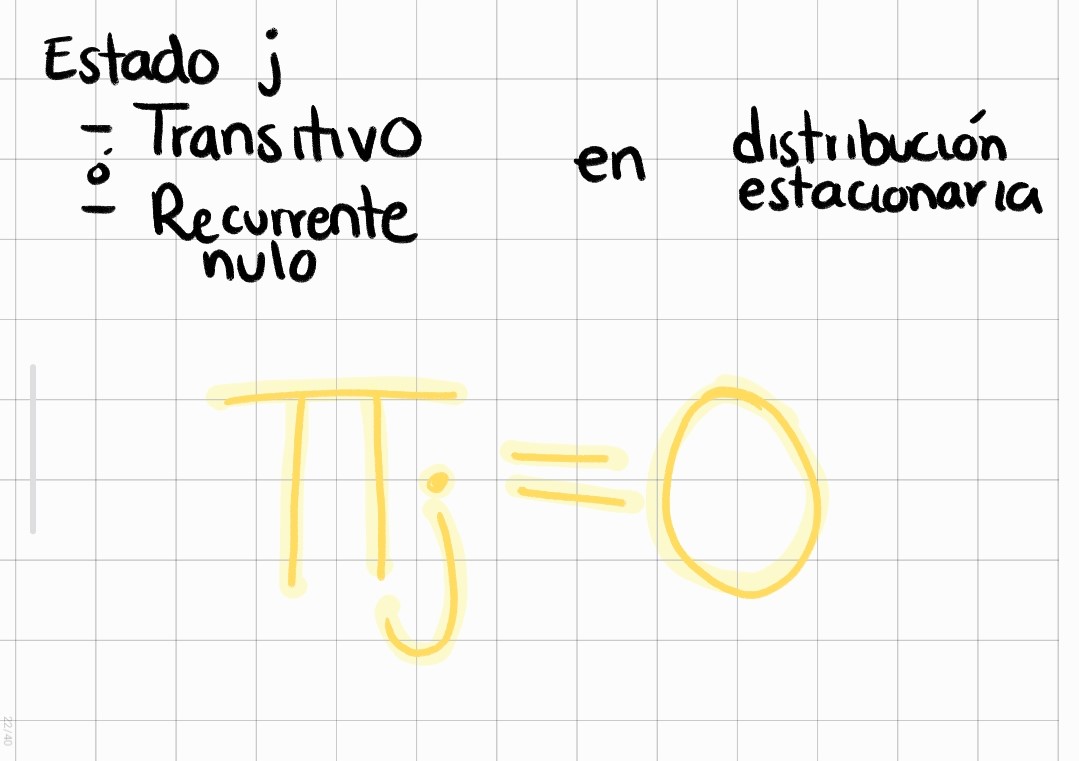 Estado j
- Transitivo
ó
- Recurrente
nulo
en
distribución
estacionaria
πj = 0
22/40